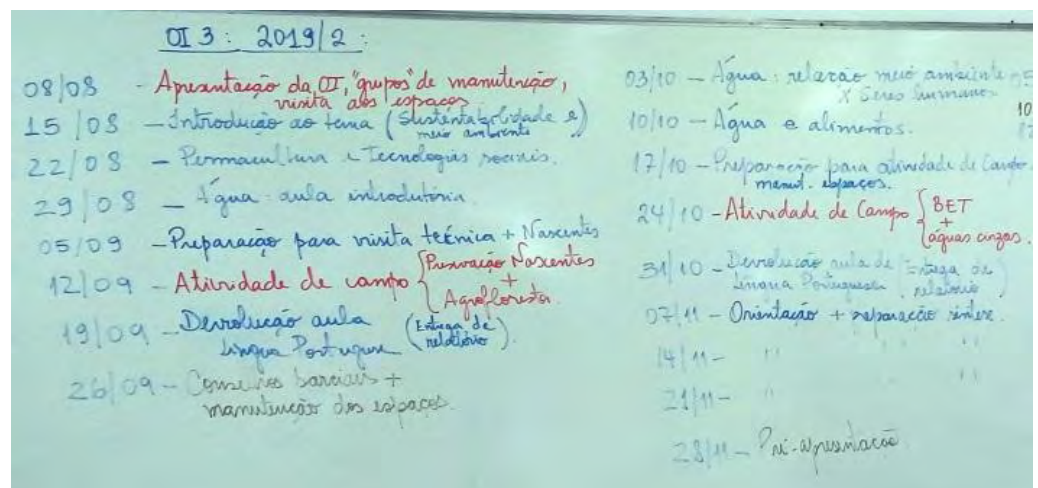 OI 3: 2019/2:
08/08 - Apresentação da OI, "grupos" de manutenção,
visita aos espaços
15/08 - Introdução ao tema (Sustentabilidade e
meio ambiente)
22/08 - Permacultura e Tecnologias sociais.
29/08 - Água: aula introdutória
05/09 - Preparação para visita técnica + Nascentes
12/09 - Atividade de campo { Preservação Nascentes
+
Agrofloresta.
19/09 - Devolução aula
Língua Portuguesa (Entrega de
relatório).
26/09 - Conselhos parciais +
manutenção dos espaços.
03/10 - Água: relação meio ambiente
X Seres humanos
10
10/10 - Água e alimentos.
17/10 - Preparação para atividade de Campo.
manut. espaços.
24/10 - Atividade de Campo { BET
+
águas cinzas.
31/10 - Devolução aula de
Língua Portuguesa (Entrega de
relatório)
07/11 - Orientação + preparação síntese.
14/11 - " " "
21/11 - " "
28/11 - Pré-apresentação